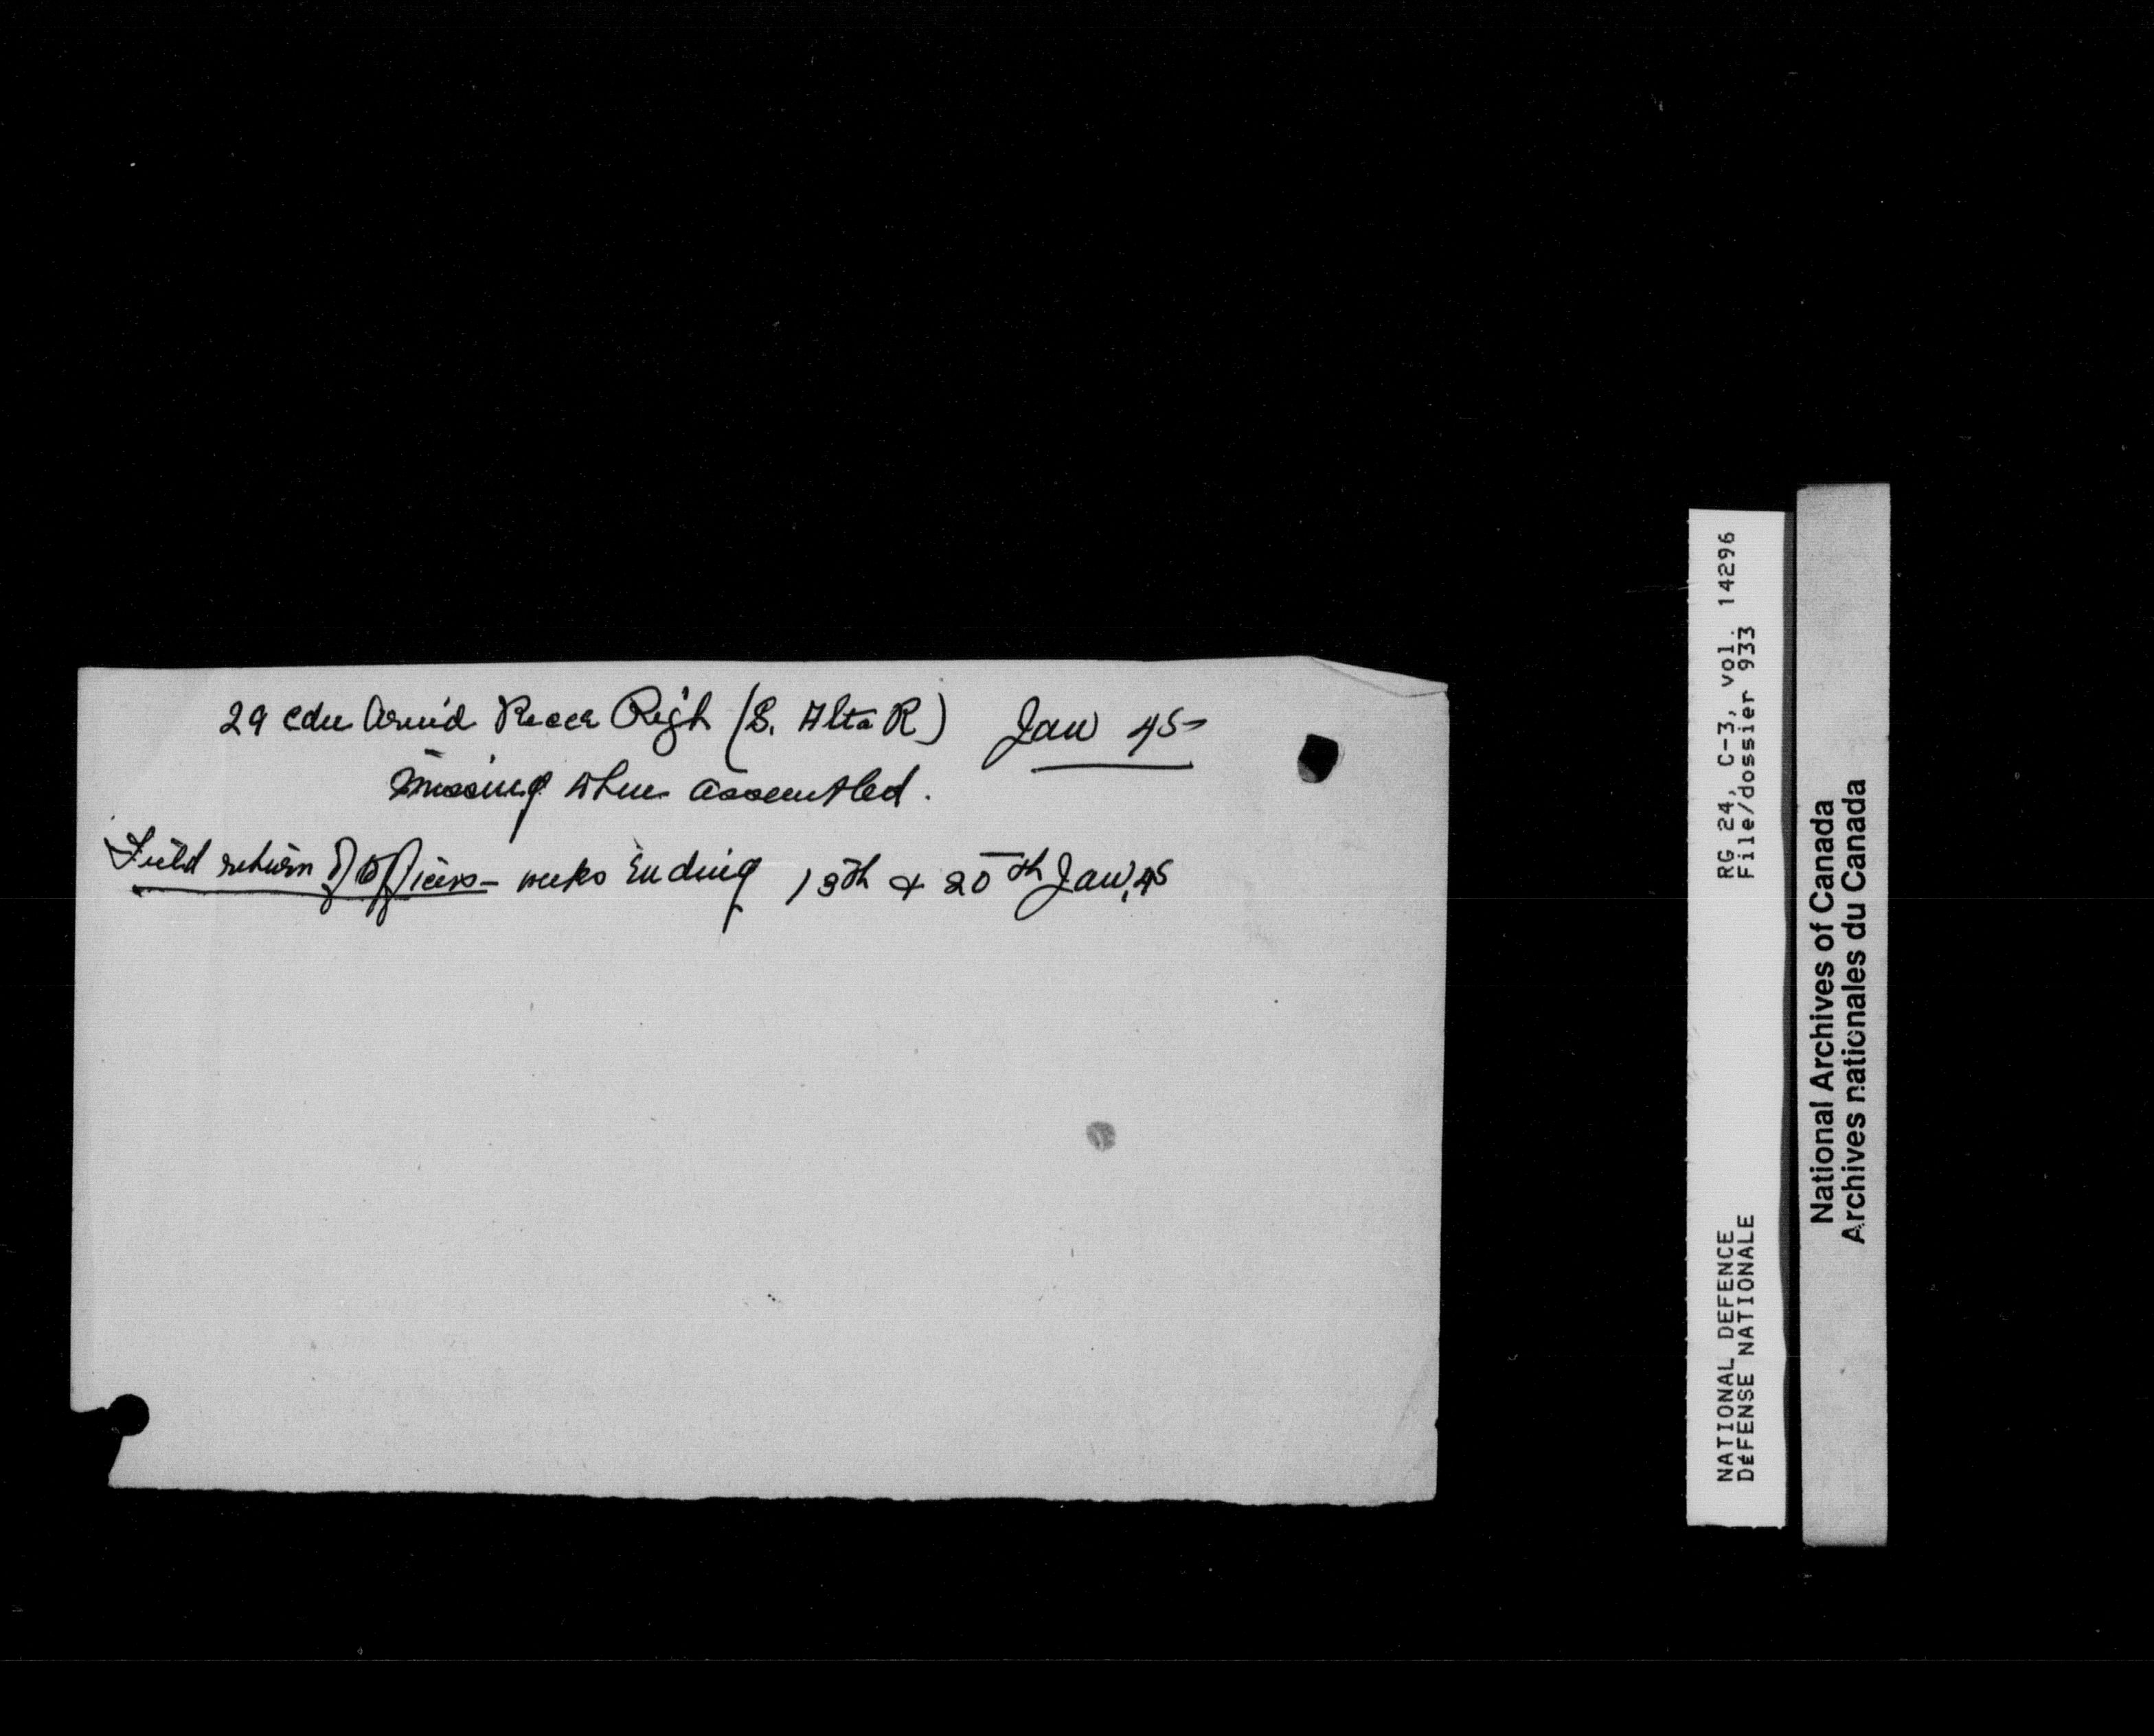 29 Cdn Armd Recce Regt (S. Alta R) Jan 45
Missing when assembled.
Field return of Officers – weeks Ending 13th & 20th Jan, 45
RG 24, C-3, vol. 14296
File/dossier 933
NATIONAL DEFENCE
DÉFENSE NATIONALE
National Archives of Canada
Archives nationales du Canada